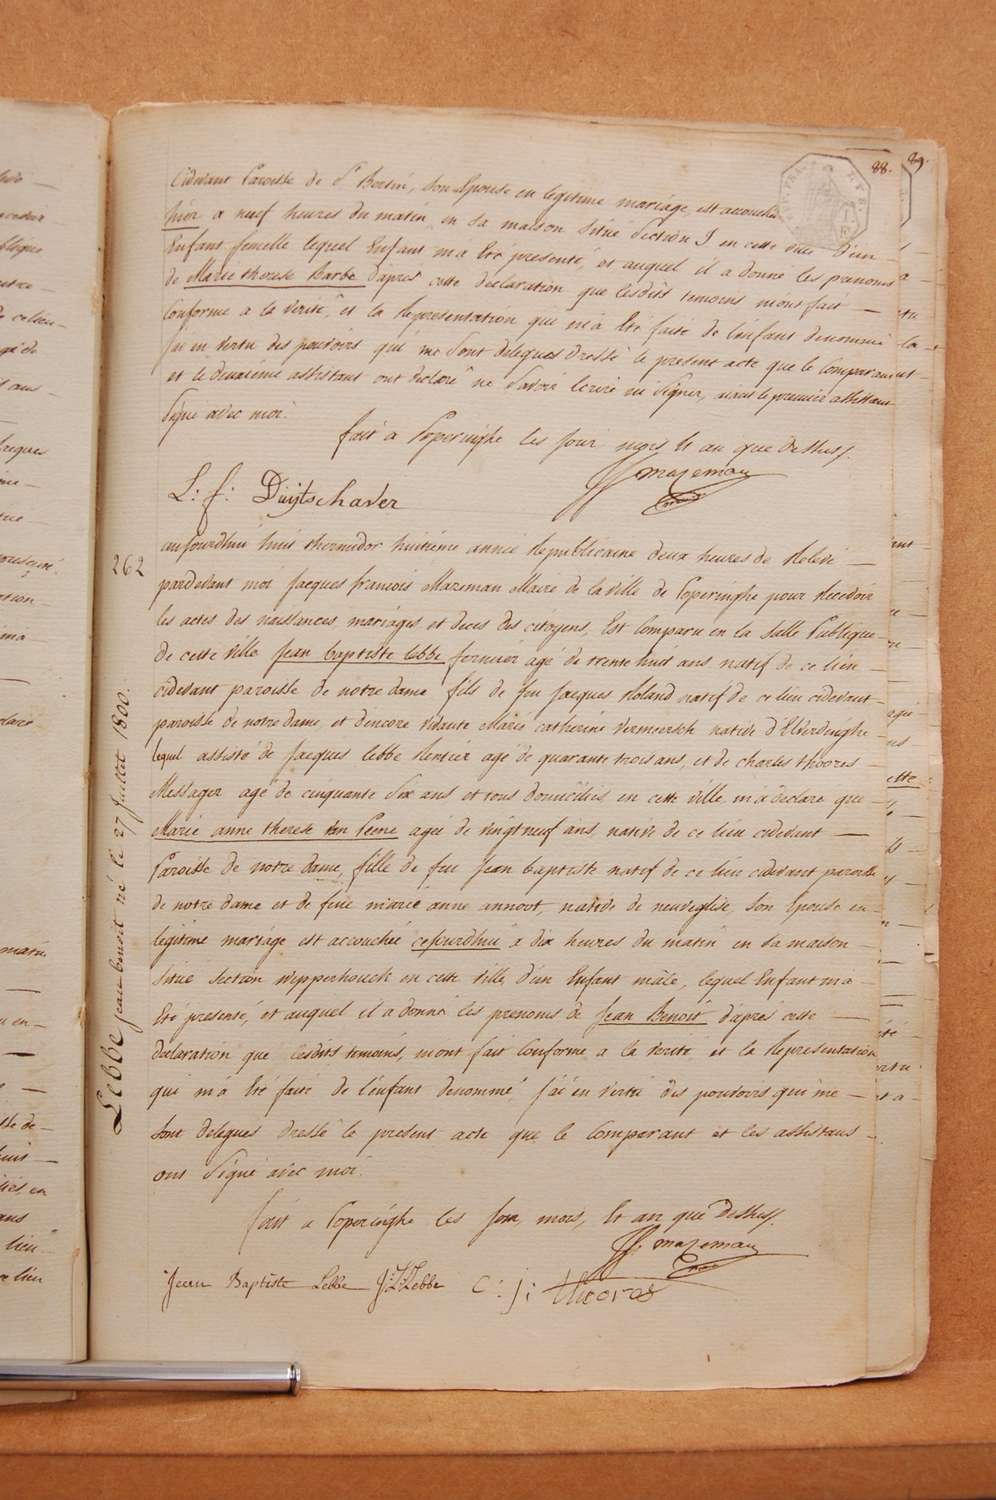 88. 89.
Cidevant Paroisse de St Bertin, son Epouse en legitime mariage, est accouchée
hier a neuf heures du matin en sa maison située Section I en cette ville d'un
Enfant femelle lequel Enfant m'a Eté presenté, et auquel il a donné les prenoms
de Marie therese Barbe d'apres cette declaration que lesdits temoins m'ont fait —
Conforme a la verité, et la Representation qui m'a Eté faite de l'enfant denommé
j'ai en vertu des pouvoirs qui me sont delegués dressé le present acte que le Comparant
et le deuxieme assistant ont declaré ne savoir Ecrire ni Signer, aiant le premier assistant
Signé avec moi.
fait a Poperinghe les jour mois Et an que dessus.
JF mazeman
L: f: Duijtschaver
262
aujourdhui huit thermidor huitieme année Republicaine deux heures de Relevé —
pardevant moi Jacques francois Mazeman Maire de la ville de Poperinghe pour Recevoir
les actes des naissances mariages et deces des citoyens, Est Comparu en la Salle Publique
de cette ville Jean baptiste lebbe fermier agé de trente huit ans natif de ce lieu
cidevant paroisse de notre dame fils de feu Jacques Roland natif de ce lieu cidevant
paroisse de notre dame et d'encore vivante Marie catherine Vermeersch native d'Elverdinghe
lequel assisté de Jacques lebbe Rentier agé de quarante trois ans, et de charles thoores
Messager agé de cinquante Six ans et tous domiciliés en cette ville m'a declaré que
Marie anne therese Van Peene agée de vingt neuf ans, native de ce lieu cidevent —
Paroisse de notre dame, fille de feu Jean baptiste natif de ce lieu cidevant paroisse
de notre dame et de feue marie anne annoot, native de neuveglise, son Epouse en
legitime mariage est accouchée cejourdhui a dix heures du matin en sa maison
située Section wypperhouck en cette ville d'un Enfant mâle, lequel Enfant m'a
Eté presenté, et auquel il a donné les prenoms de Jean Benoit d'apres cette —
declaration que lesdits temoins, m'ont fait Conforme a la verité et la Representation
qui m'a Eté faite de l'enfant denommé, j'ai en vertu des pouvoirs qui me —
sont delegues dressé le present acte que le Comparant et les assistans
ont Signé avec moi.
fait a Poperinghe les jour, mois, Et an que dessus.
JF mazeman
Jean Baptiste Lebbe J: Lebbe C: j: thoores
Lebbe jean benoit né le 27 Juillet 1800.